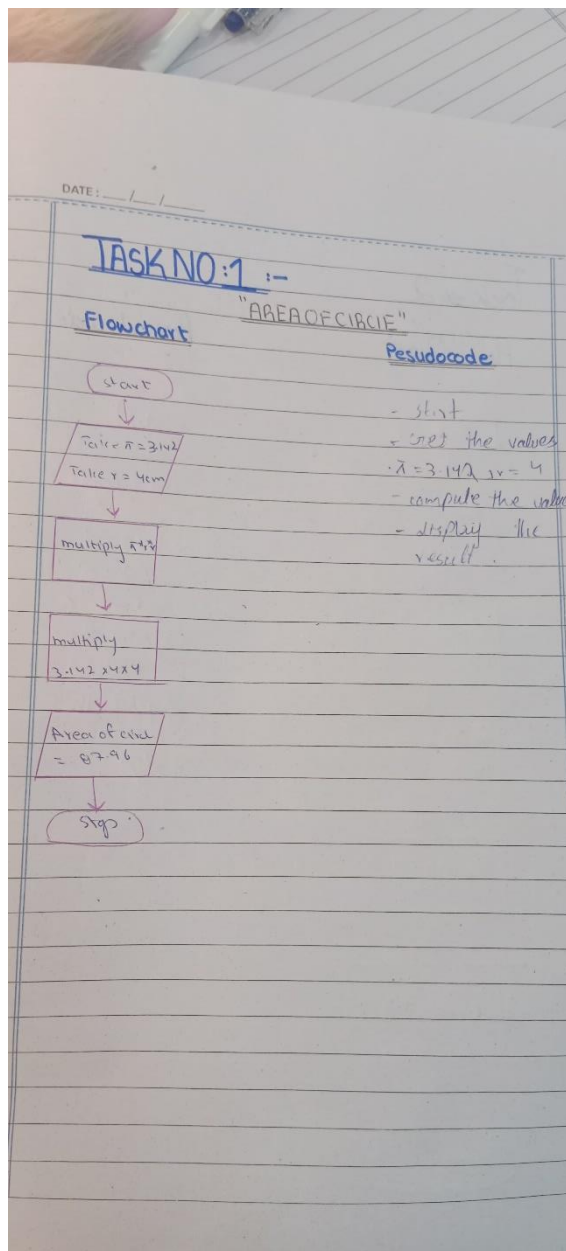 DATE: __/__/____
TASK NO:1 :-
"AREA OF CIRCLE"
Flowchart
start
Take π = 3.142
Take r = 4cm
multiply
multiply
3.142 x4x4
Area of
= 87.96
stop
Pesudocode
- start
- Get the values
. π = 3.142 , r = 4
- compute the value
- display the
result .